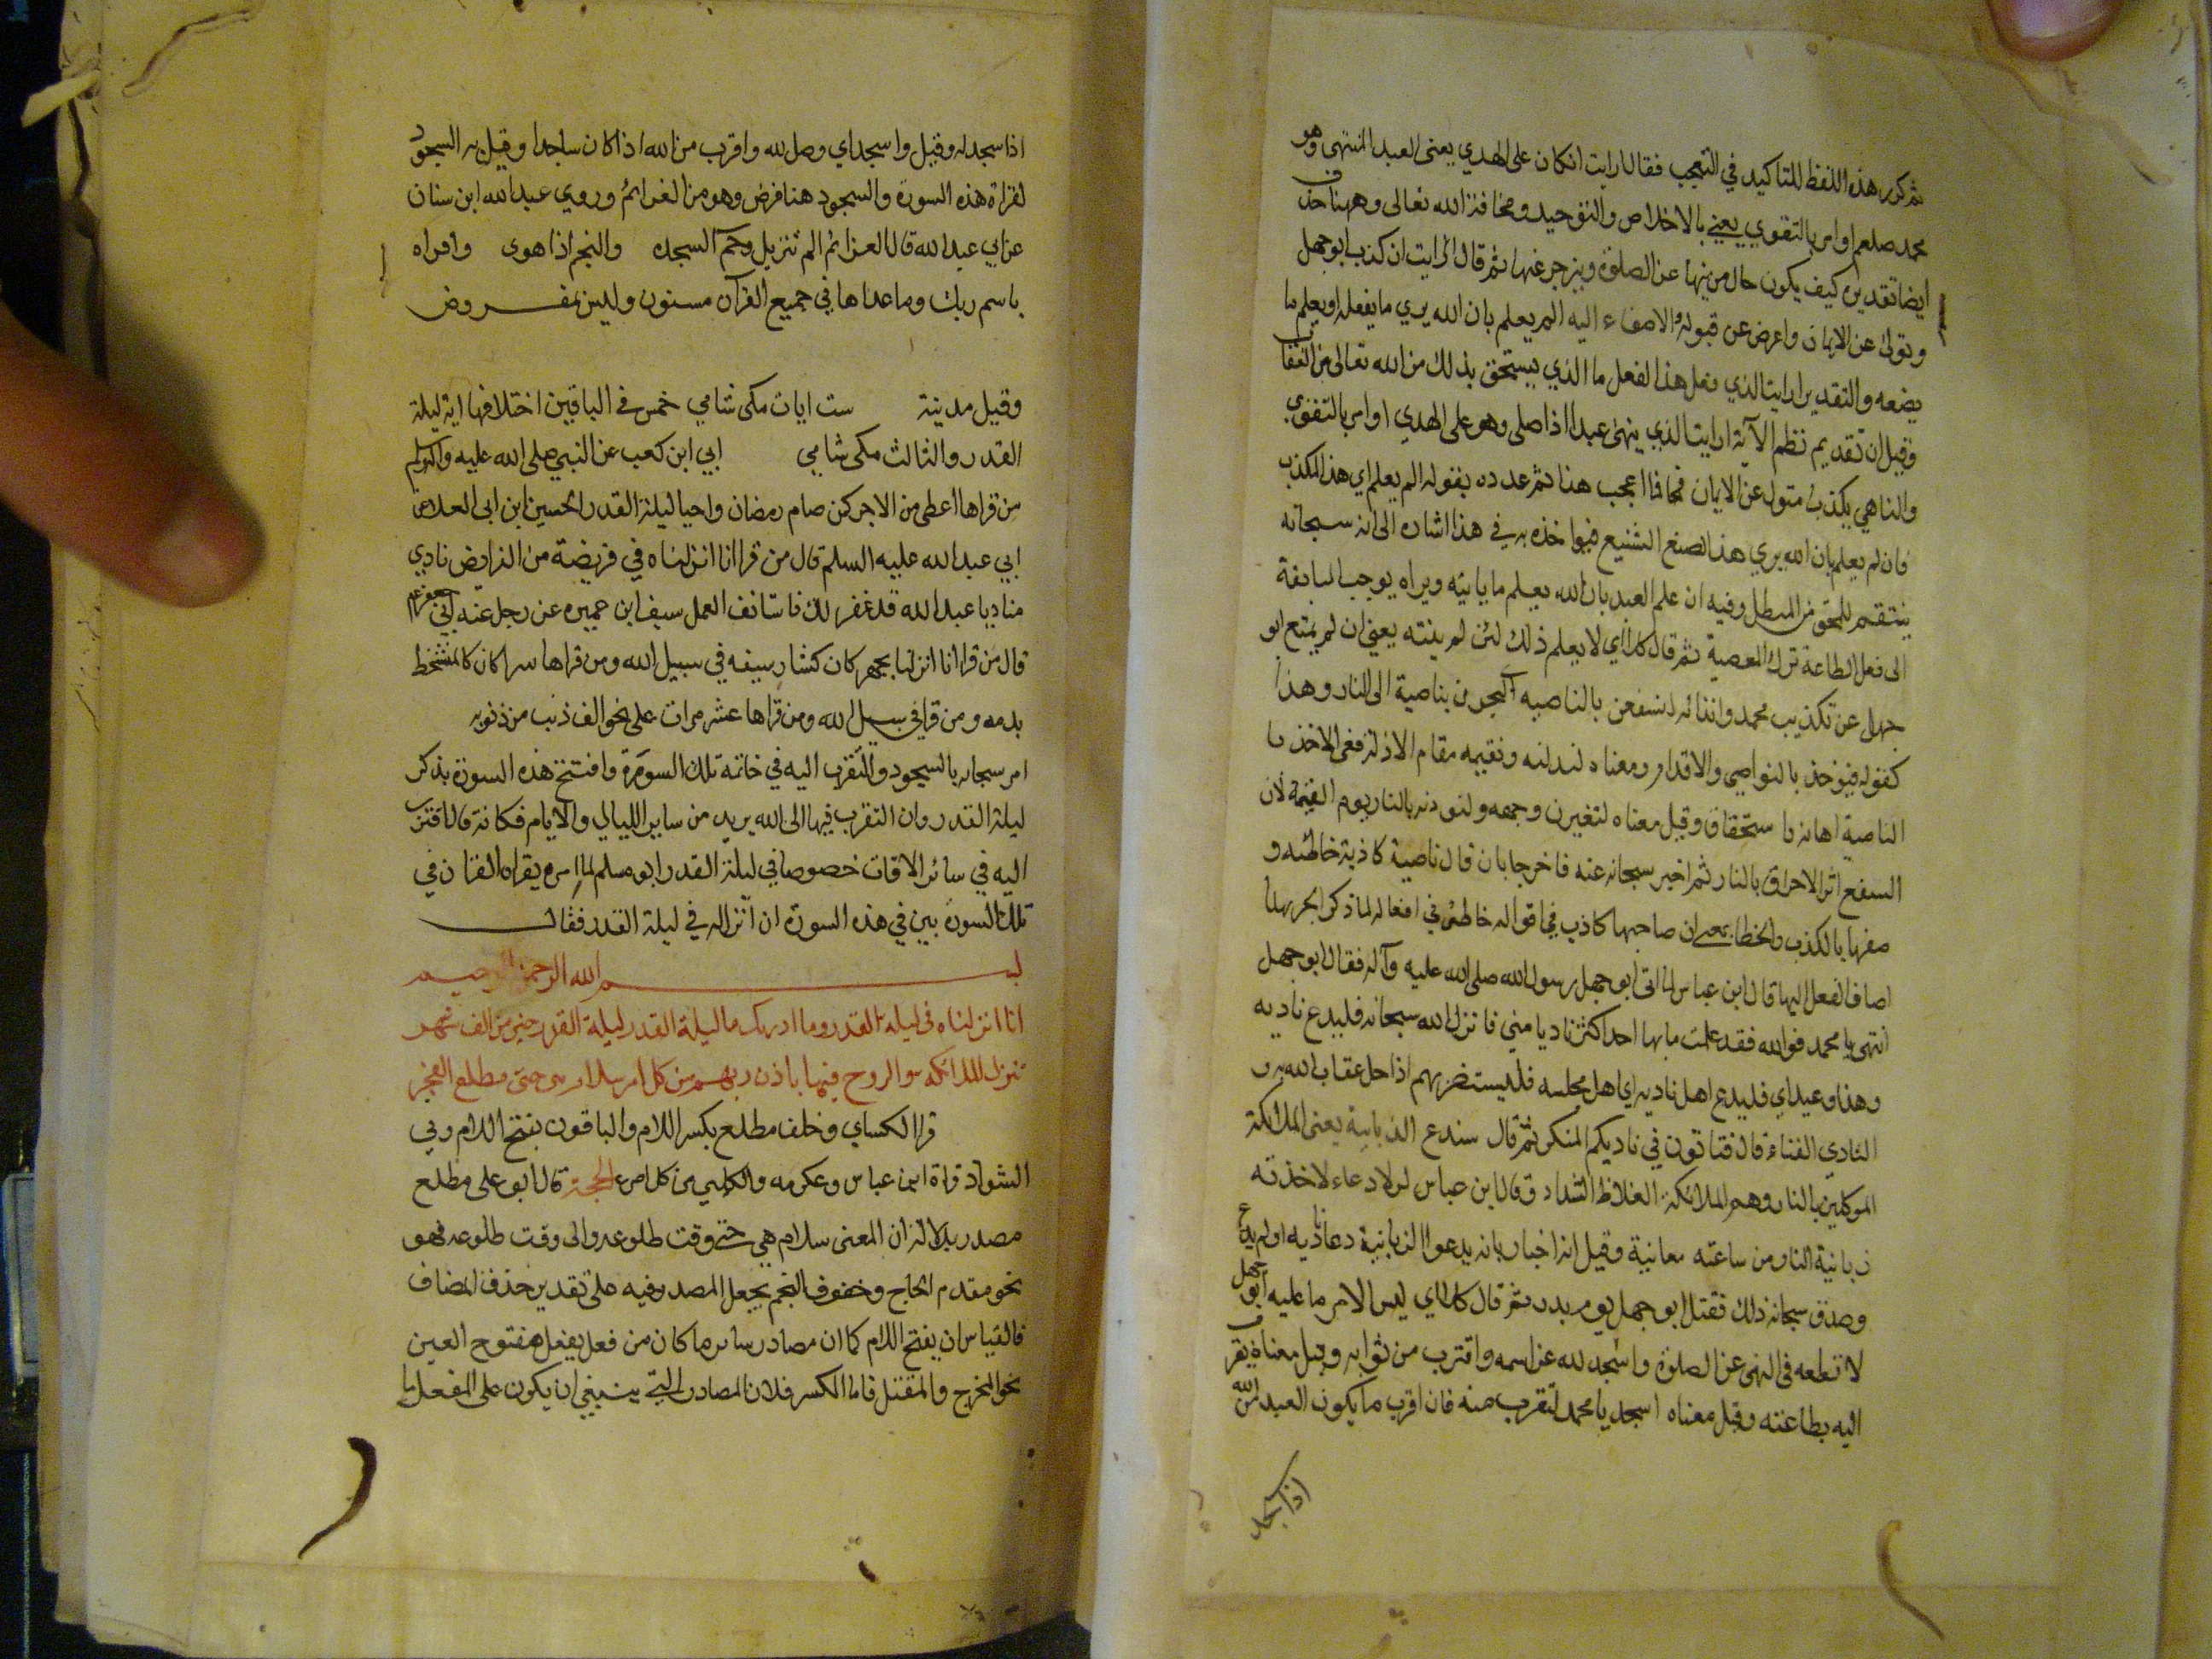 ثم كرر هذه اللفظ للتاكيد في التعجب فقال ارايت ان كان على الهدي يعنى العبد المنتهى وهو
محمد صلعم او امر بالتقوي يعني بالاخلاص والتوحيد ومخافة الله تعالى وههنا حذف
ايضا تقديره كيف يكون حال من ينهاه عن الصلوة ويزجر عنها ثم قال ارايت ان كذب ابو جهل
وتولى عن الايمان واعرض عن قبوله والاصغاء اليه الم يعلم بان الله يري ما يفعله ويعلم ما
يضعه والتقدير ارايت الذي فعل هذا الفعل ما الذي يستحق بذلك من الله تعالى من العقاب
وقيل ان تقديم نظم الآية ارايت الذي ينهى عبدا اذا صلى وهو على الهدي او امر بالتقوى
والناهي يكذب متول عن الايمان فما اعجب هذا ثم عدده بقوله الم يعلم اي هذا المكذب
فان لم يعلم بان الله يري هذا الصنع الشنيع فيواخذه به في هذا اشارة الى انه سبحانه
ينتقم للمحق من المبطل وفيه ان علم العبد بان الله يعلم ما ياتيه ويراه يوجب المابقة
الى فعل الطاعة ترك المعصية ثم قال كلا اي لا يعلم ذلك لئن لم ينته يعني ان لم يمتع ابو
جهل عن تكذيب محمد وايذائه لنسفعن بالناصيه اي ليجرن بناصية الى النار وهذا
كقوله فيوخذ بالنواصي والاقدام ومعناه لنذلنه ونقيمه مقام الاذلة ففي الاخذ با
الناصية اهانة واستخفاف وقيل معناه لتغيرن وجهه ولنسودنه بالنار يوم القيمة لان
السفع اثر الاحراق بالنار ثم اخبر سبحانه عنه فاخرجا بان قال ناصية كاذبة خاطئه و
صفها بالكذب والخطا بمعنى ان صاحبها كاذب في اقواله خاطئ في افعاله لما ذكر الجر بها
اضاف الفعل اليها قال ابن عباس لما اتى ابو جهل رسول الله صلى الله عليه وآله فقال ابو جهل
انتهى يا محمد فوالله فقد علمت ما بها احد اكثر ناديا مني فانزل الله سبحانه فليدع ناديه
وهذا وعيد اي فليدع اهل ناديه اي اهل مجلسه فلليستضربهم اذا حل عقاب الله به و
النادي الفناء قال فتاتون في ناديكم المنكر ثم قال سندع الزبانية يعنى الملائكة
الموكلين بالنار وهم الملائكة الغلاظ الشداد وقال ابن عباس لو لا دعاء لاخذته
زبانية النار من ساعته معانية وقيل انه اخبار بانه يدعو الزبانية دعا ناديه او لم يدع
وصدق سبحانه ذلك فقتل ابو جهل يوم بدر ثم قال كلا اي ليس الامر ما عليه ابو جهل
لا تطعه فى النهى عن الصلوة واسجد لله عز اسمه واقترب من ثوابه وقيل معناه تقرب
اليه بطاعته وقيل معناه اسجد يا محمد لتقرب منه فان اقرب ما يكون العبد من الله
اذا سجد
اذا سجد له وقيل واسجد اي وصل لله واقرب من الله اذا كان ساجدا وقيل به السجود
لقراة هذه السورة والسجود هنا فرض وهو من الغرائم وروي عبد الله ابن سنان
عن ابي عبد الله قال العزائم الم تنزيل وحم السجده والنجم اذا هوى واقراه
باسم ربك وما عداها في جميع القرآن مسنون وليس بمفروض
وقيل مدينة ست ايات مكى شامي خمس في الباقين اختلافها اية ليلة
القدر والثالث مكى شامي ابي ابن كعب عن النبي صلى الله عليه وآله وسلم
من قراها اعطى من الاجر كمن صام رمضان واحيا ليلة القدر الحسين ابن ابى العلا عن
ابي عبد الله عليه السلم قال من قرا انا انزلناه في فريضة من الفرايض نادي
مناد يا عبد الله قد غفر لك فاستانف العمل سيف ابن عميره عن رجل عن ابي جعفر عم
قال من قرا انا انزلناه بجهر كان كشار سيفه في سبيل الله ومن قراها سرا كان كالمتشحط
بدمه ومن قرا في سبيل الله ومن قراها عشر مرات على نحو الف ذنب من ذنوبه
امر سبحانه بالسجود والتقرب اليه في خاتمة تلك السورة وافتتح هذه السورة بذكر
ليلة القدر وان التقرب فيها الى الله يزيد من ساير الليالي والايام فكانه قال اقترب
اليه في سائر الاوقات خصوصا في ليلة القدر ابو مسلم لما امره بقراه القران في
تلك السورة بين في هذه السورة ان انزاله في ليلة القدر فقال
بسم الله الرحمن الرحيم
انا انزلناه فى ليلة القدر وما ادريك ما ليلة القدر ليلة القدر خير من الف شهر
تنزل الملائكه والروح فيها باذن ربهم من كل امر سلام هى حتى مطلع الفجر
قرا الكساي وخلف مطلع بكسر اللام والباقون بفتح اللام وفي
الشواذ قراة ابن عباس وعكرمه والكلبي من كل امرء الحجة قال ابو على مطلع
مصدر بدلالة ان المعنى سلام هي حتى وقت طلوعه والى وقت طلوعه فهو
نحو مقدم الحاج وخفوق النجم يجعل المصدر فيه على تقدير حذف المضاف
فالقياس ان يفتح اللام كما ان مصادر ساير ما كان من فعل يفعل مفتوح العين
نحو المخرج والمقتل فاما الكسر فلان المصادر التي ينبغي ان يكون على المفعل ما